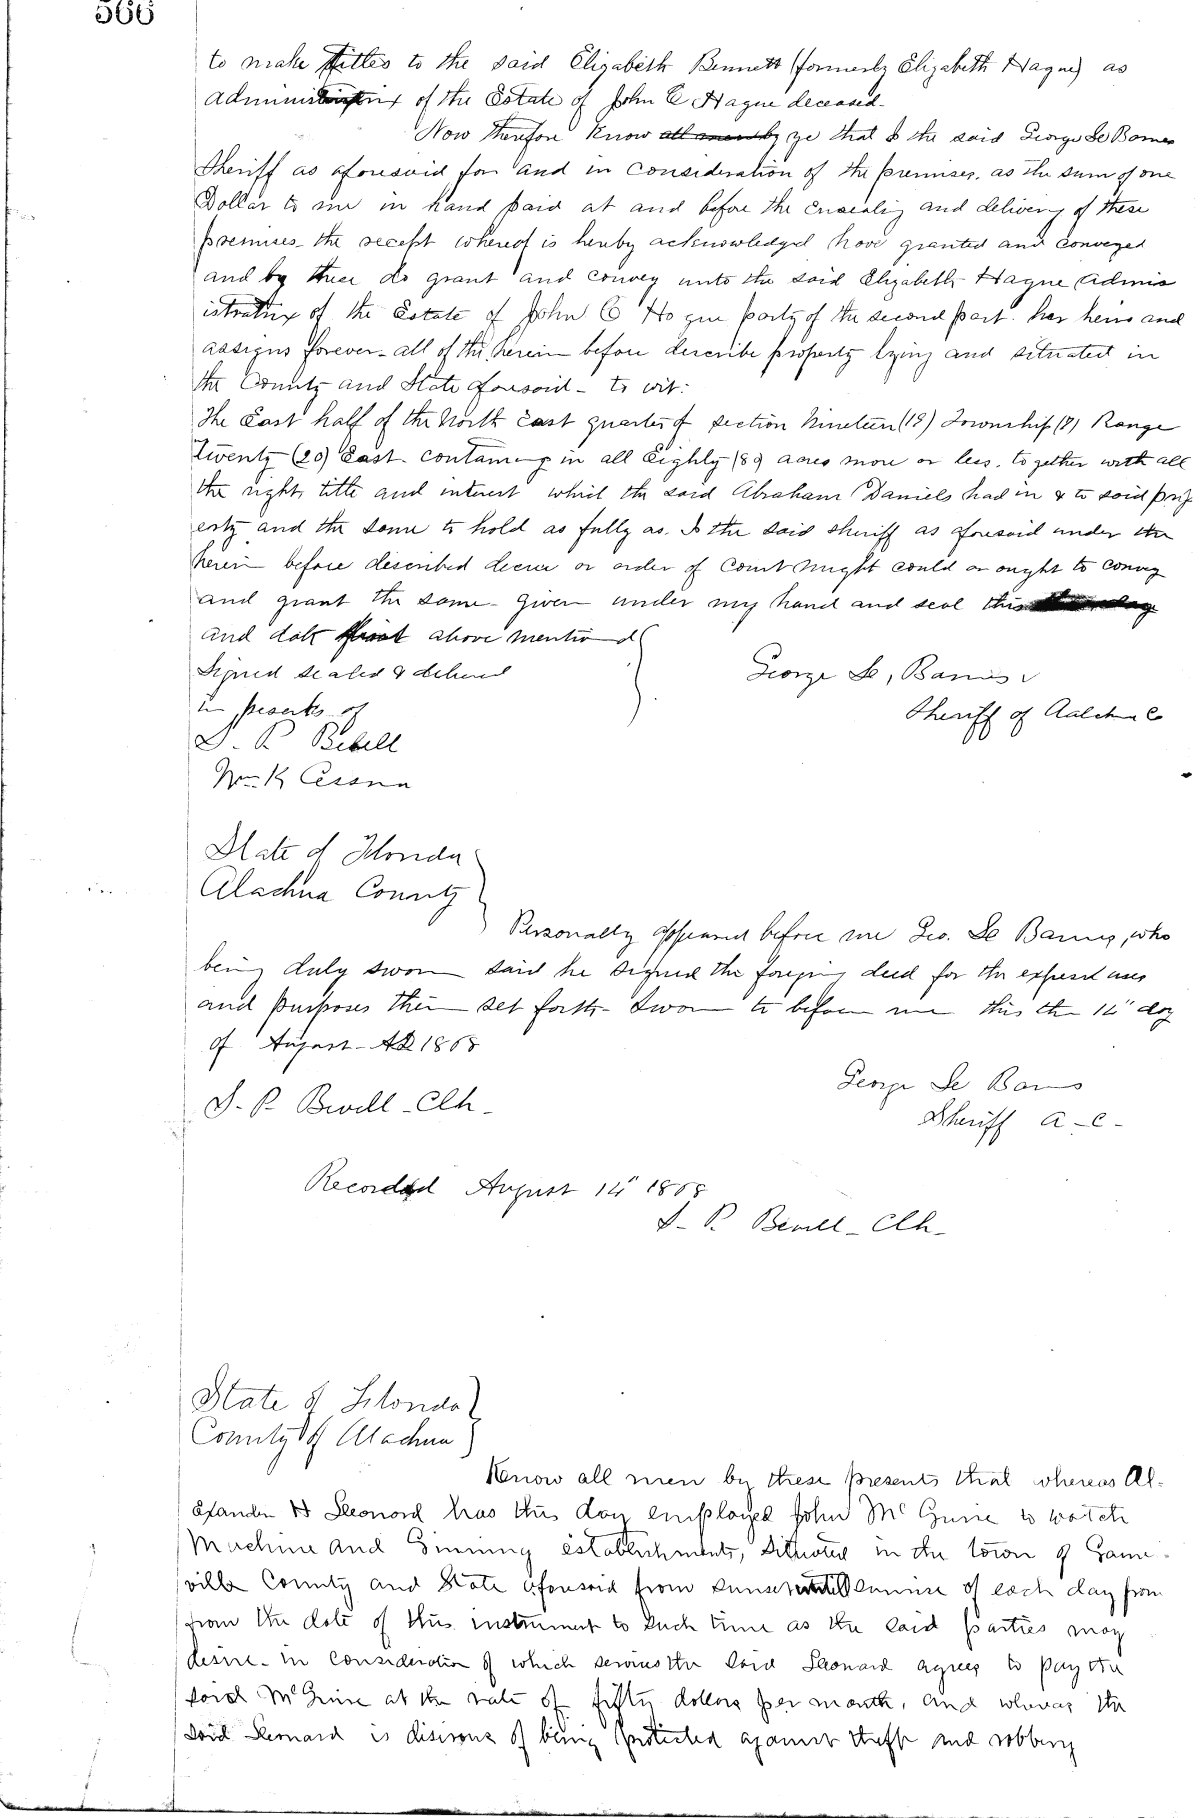 566
to make titles to the said Elizabeth Bennett (formerly Elizabeth Hague) as
administratrix of the Estate of John C Hague deceased-
Now Therefore Know all men by ye that I the said George Le Barnes
Sheriff as aforesaid for and in consideration of the premises. as the sum of one
Dollar to me in hand paid at and before the ensealing and delivery of these
premises- the receipt whereof is hereby acknowledged have granted and conveyed
and by these do grant and convey unto the said Elizabeth Hague Adminis
istratrix of the Estate of John C Hogue party of the second part. her heirs and
assigns forever- all of the herein before describe property lying and situated in
the County and State aforesaid- to wit:
The East half of the North East quarter of section Nineteen (19) Township (9) Range
Twenty (20) East containing in all Eighty (80) acres more or less. together with all
the right, title and interest which the said Abraham Daniels had in & to said prop
erty and the same to hold as fully as. I the said sheriff as aforesaid under the
herein before described decree or order of Court might could or ought to convey
and grant the same- given under my hand and seal this
and date first above mentiond
Signed sealed & delivered
in presents of
George Le, Barnes
Sheriff of Aalchua Co
S. P. Bebell
Wm K Cessna
State of Florida
Alachua County
Personally appeared before me Geo. Le Barnes, who
being duly sworn said he signed the foregoing deed for the expressed uses
and purposes therein set forth- Sworn to before me this the 14" day
of August- AD 1868
George Le Barnes
Sheriff A-C-
S. P. Bevill-Clk-
Recorded August 14" 1868
S- P. Bevill- Clk-
State of Florida
County of Alachua
Know all men by these presents that whereas Al-
exander H Leonord has this day employed John McGuire to watch
Machine and Ginning establishments, situated in the town of Gains-
ville County and State aforesaid from sunset until sunrise of each day from
from the date of this instrument to such time as the said parties may
desire- in consideration of which services the said Leonard agrees to pay the
said McGuire at the rate of fifty dollars per month, and whereas the
said Leonard is disirous of being protected against theft and robbery